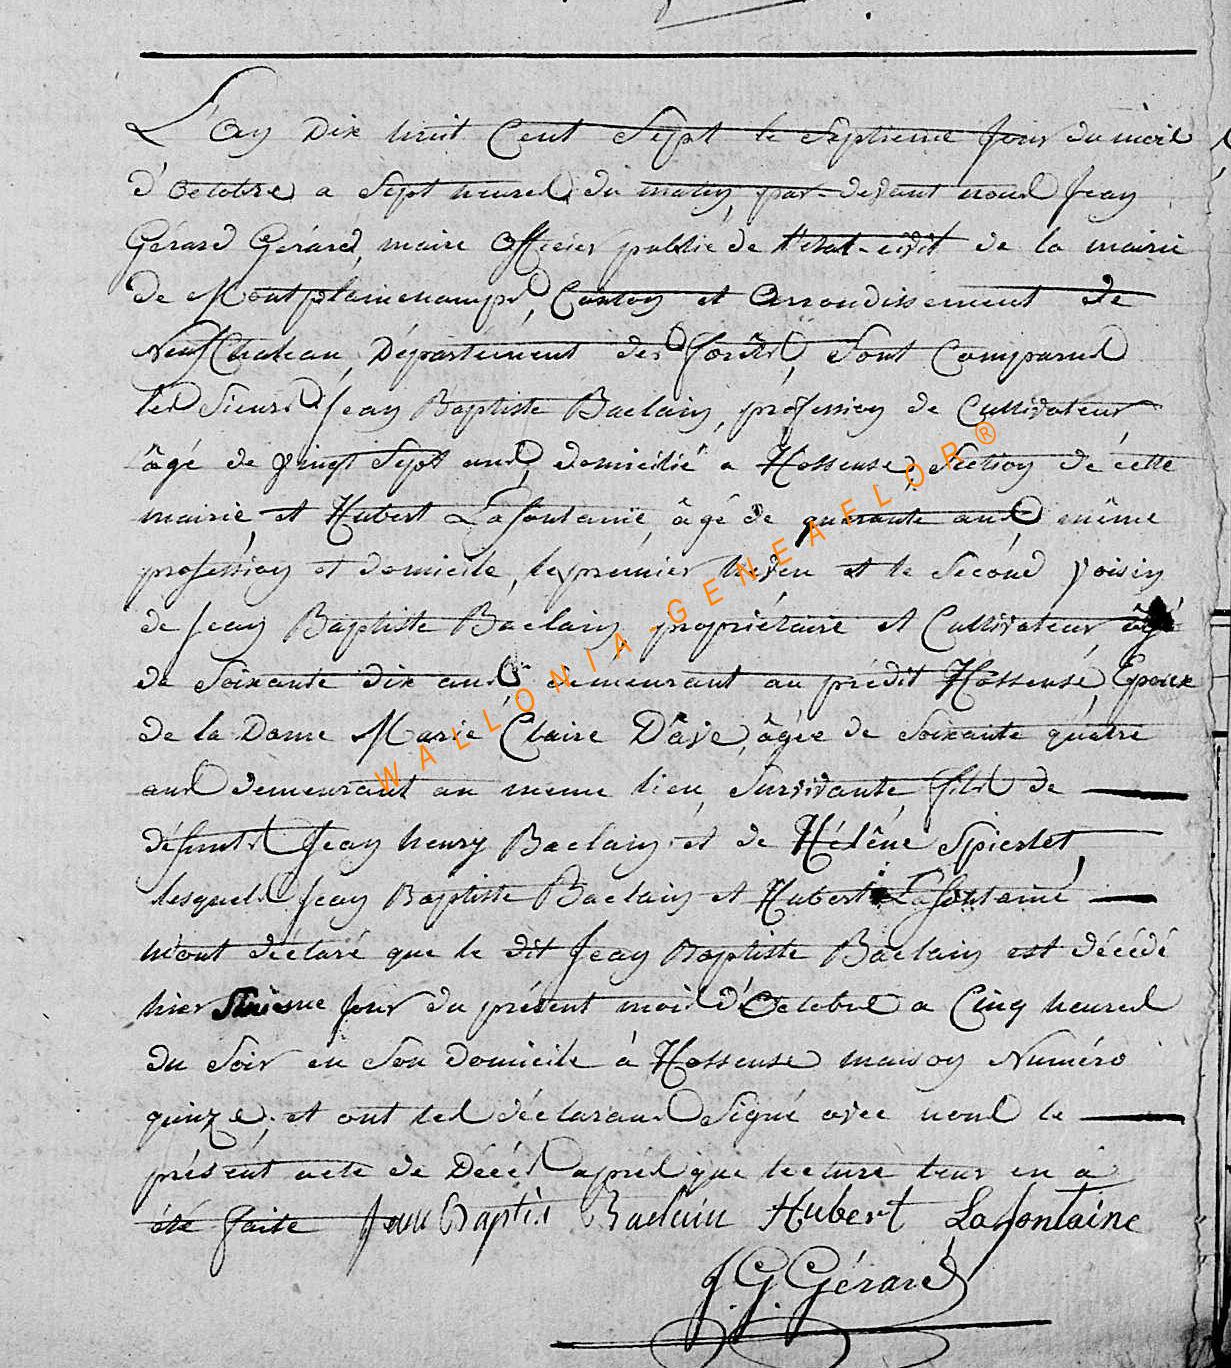 L'an Dix huit Cent Sept le Septieme Jour du mois
d'Octobre a Sept heures du matin, par-devant nous Jean
Gérard Gérard, maire Officier public de l'etat-civil de la mairie
de Montplainchamps, Canton et Arrondissement de
Neufchateau, Département des forêts, Sont Comparus
les Sieurs Jean Baptiste Baclain, profession de Cultivateur
âgé de vingt Sept ans, domicilié a Hosseuse, Section de cette
mairie, et Hubert Lafontaine, âgé de quarante ans, même
profession et domicile, le premier Neveu et le Second Voisin
de Jean Baptiste Baclain, propriétaire et Cultivateur âgé
de Soixante dix ans demeurant au prédit Hosseuse, Epoux
de la Dame Marie Claire Dave, âgée de Soixante quatre
ans demeurant au meme lieu, Survivante, fils de
défunts Jean henry Baclain et de Hélêne Spierlet,
lesquels Jean Baptiste Baclain et Hubert Lafontaine
m'ont déclaré que le dit Jean Baptiste Baclain est décédé
hier Sixieme Jour du présent mois d'Octobre a Cinq heures
du Soir en Son domicile à Hosseuse maison Numéro
quinze; et ont les déclarans Signé avec nous le
présent acte de Décés après que lecture leur en a
été faite Jean Baptis Baclain Hubert Lafontaine
J. G. Gérard
WALLONIA-GENEAFLOR®